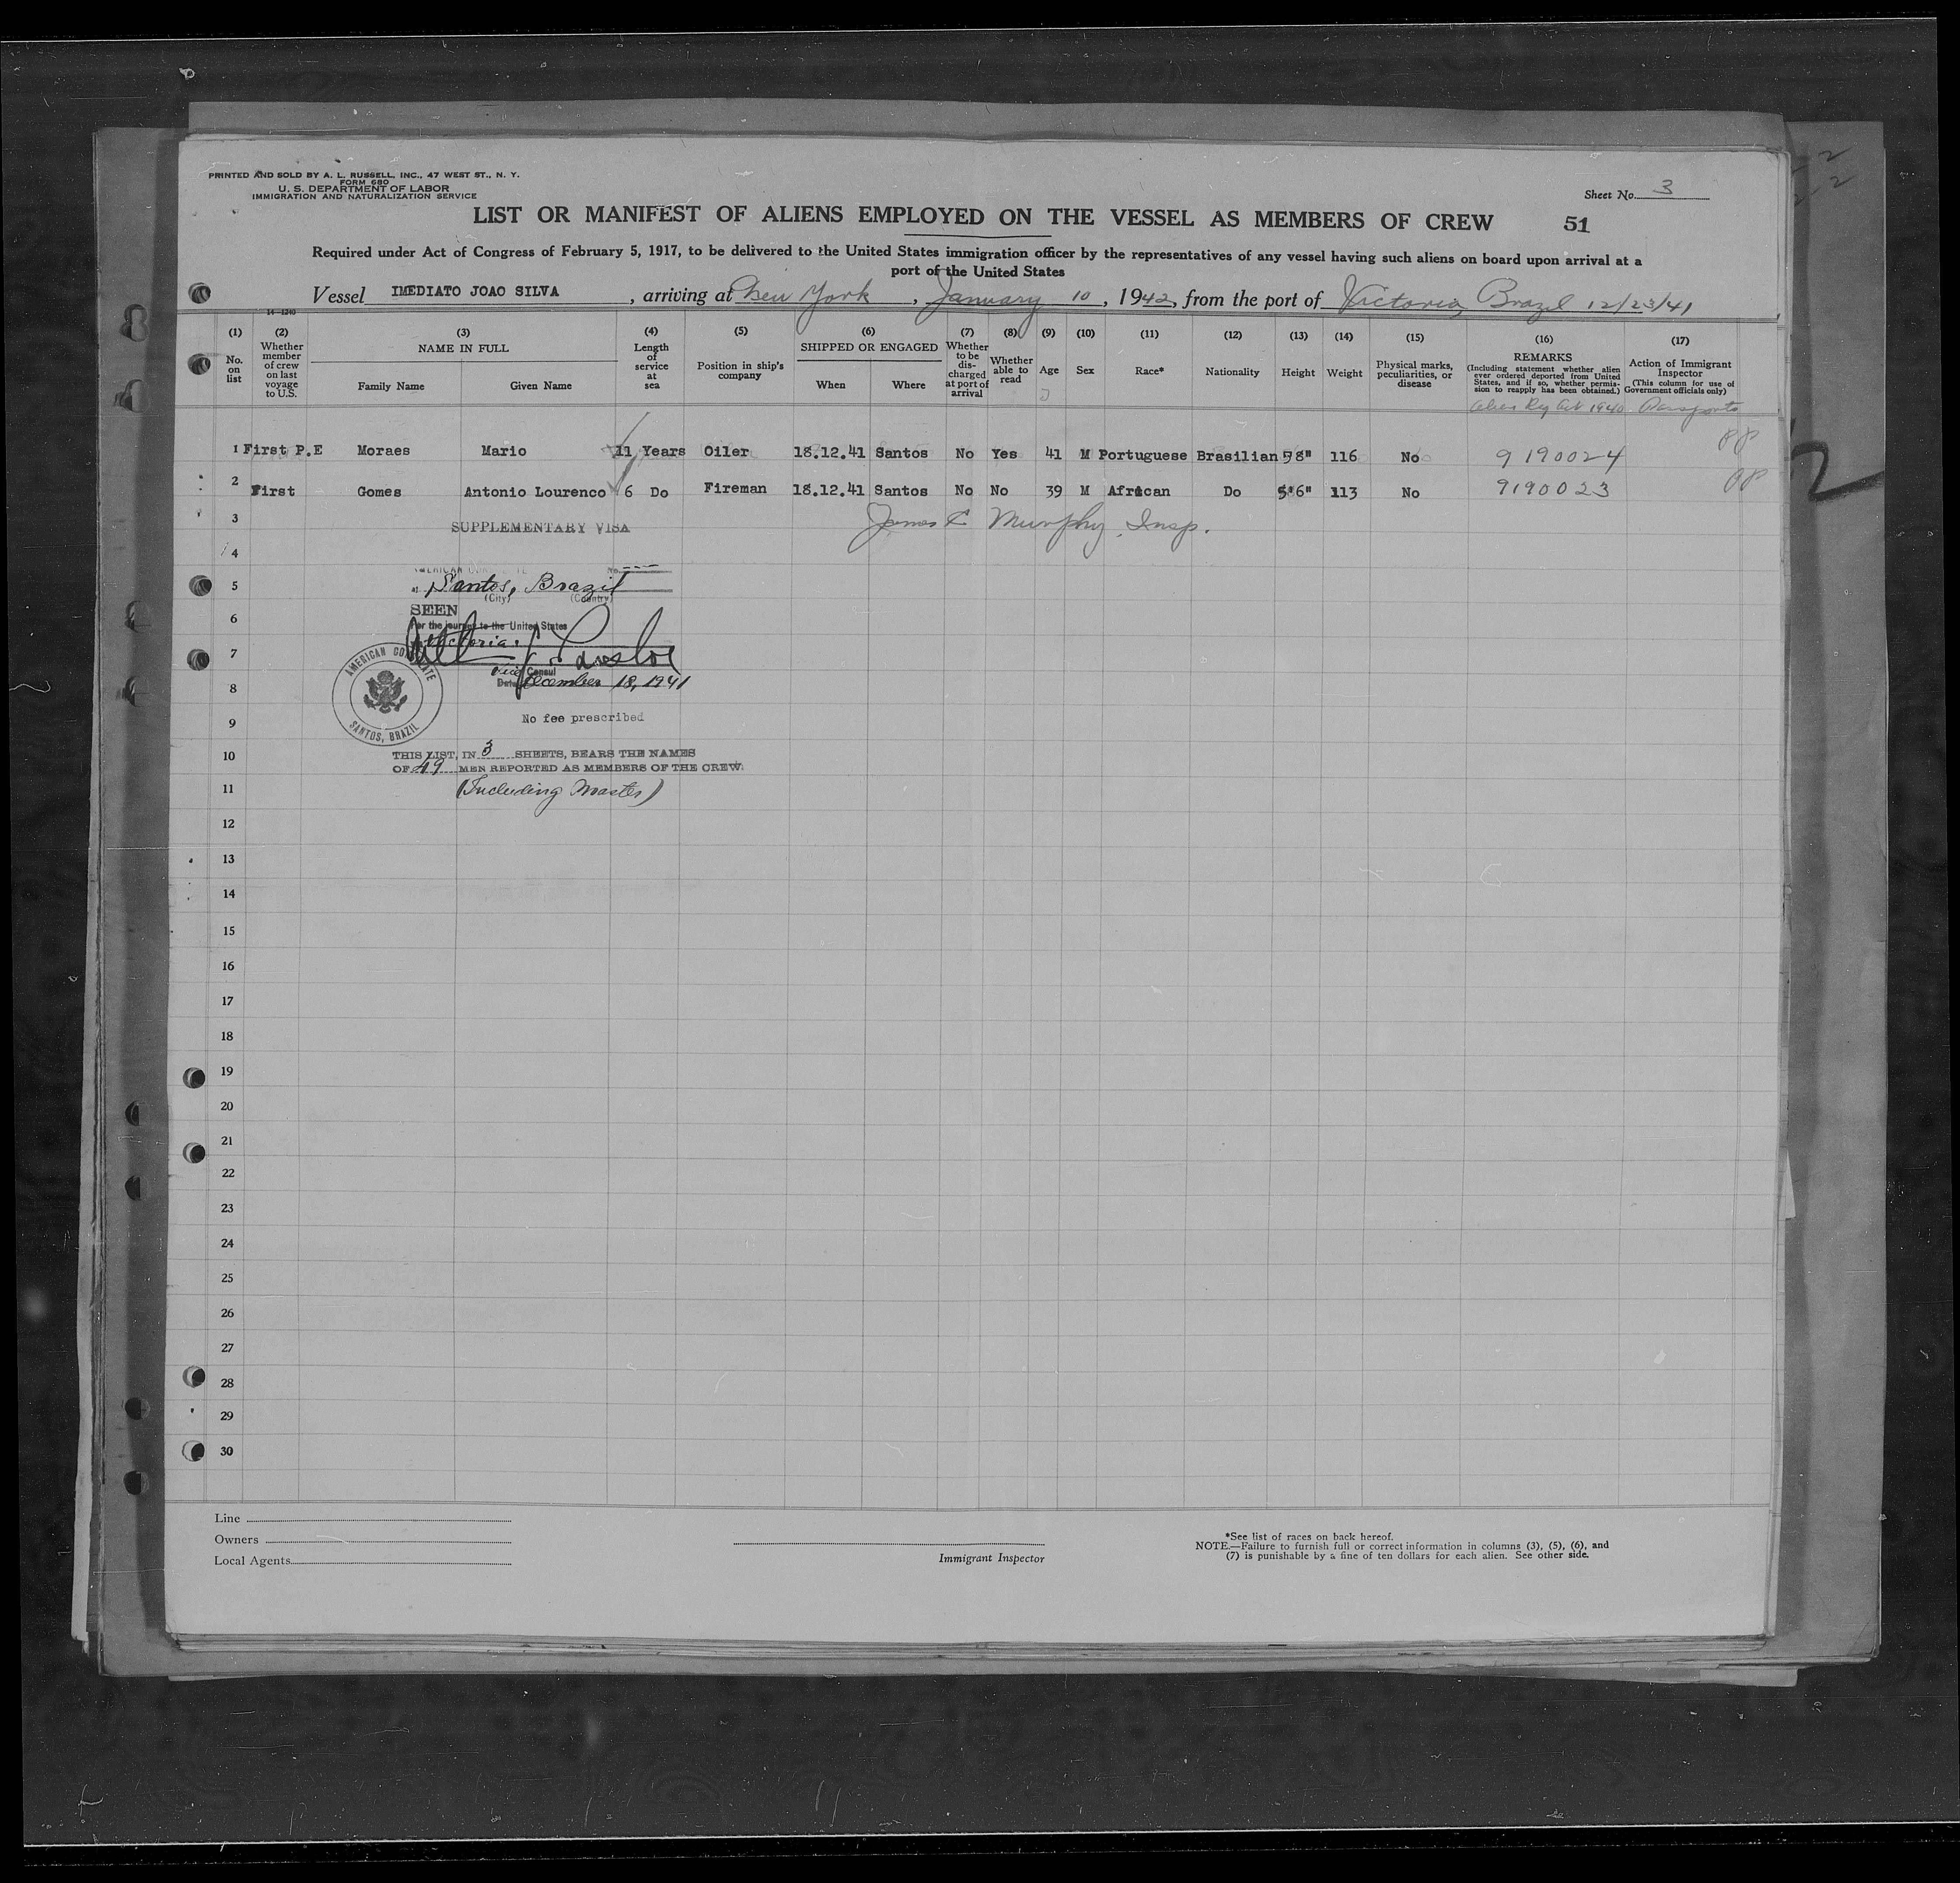 PRINTED AND SOLD BY A. L. RUSSELL, INC., 47 WEST ST., N. Y.
FORM 680
U. S. DEPARTMENT OF LABOR
IMMIGRATION AND NATURALIZATION SERVICE
Sheet No. 3
LIST OR MANIFEST OF ALIENS EMPLOYED ON THE VESSEL AS MEMBERS OF CREW 51
Required under Act of Congress of February 5, 1917, to be delivered to the United States immigration officer by the representatives of any vessel having such aliens on board upon arrival at a
port of the United States
Vessel IMEDIATO JOAO SILVA, arriving at New York, January 10, 1942, from the port of Victoria, Brazil 12/23/41
14—1240
(1) No. on list
(2) Whether member of crew on last voyage to U.S.
(3) NAME IN FULL
Family Name Given Name
(4) Length of service at sea
(5) Position in ship's company
(6) SHIPPED OR ENGAGED
When Where
(7) Whether to be discharged at port of arrival
(8) Whether able to read
(9) Age
(10) Sex
(11) Race*
(12) Nationality
(13) Height
(14) Weight
(15) Physical marks, peculiarities, or disease
(16) REMARKS
(Including statement whether alien ever ordered deported from United States, and if so, whether permission to reapply has been obtained.)
Alien Reg Act 1940
(17) Action of Immigrant Inspector
(This column for use of Government officials only)
Passports
1 First P.E Moraes Mario 11 Years Oiler 18.12.41 Santos No Yes 41 M Portuguese Brasilian 5'8" 116 No 9190024 PP
2 First Gomes Antonio Lourenco 6 Do Fireman 18.12.41 Santos No No 39 M African Do 5'6" 113 No 9190023 PP
3 SUPPLEMENTARY VISA James C Murphy, Insp.
4
AMERICAN CONSULATE No. ---
5 at Santos, Brazil
(City) (Country)
SEEN
6 For the journey to the United States
Victoria
7
Vice Consul
8 Date December 18, 1941
AMERICAN CONSULATE
SANTOS, BRAZIL
9 No fee prescribed
10 THIS LIST, IN 3 SHEETS, BEARS THE NAMES
OF 49 MEN REPORTED AS MEMBERS OF THE CREW.
11 (Including Master)
12
13
14
15
16
17
18
19
20
21
22
23
24
25
26
27
28
29
30
Line
Owners
Local Agents
Immigrant Inspector
*See list of races on back hereof.
NOTE.—Failure to furnish full or correct information in columns (3), (5), (6), and
(7) is punishable by a fine of ten dollars for each alien. See other side.